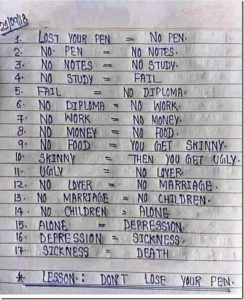 21/09/18
1. LOST YOUR PEN = NO PEN.
2. NO PEN = NO NOTES.
3. NO NOTES = NO STUDY.
4. NO STUDY = FAIL
5. FAIL = NO DIPLOMA.
6. NO DIPLOMA = NO WORK.
7. NO WORK = NO MONEY.
8. NO MONEY = NO FOOD.
9. NO FOOD = YOU GET SKINNY.
10. SKINNY = THEN YOU GET UGLY.
11. UGLY = NO LOVER.
12. NO LOVER = NO MARRIAGE.
13. NO MARRIAGE = NO CHILDREN.
14. NO CHILDREN = ALONE
15. ALONE = DEPRESSION.
16. DEPRESSION = SICKNESS.
17. SICKNESS = DEATH
* LESSON: DON'T LOSE YOUR PEN.